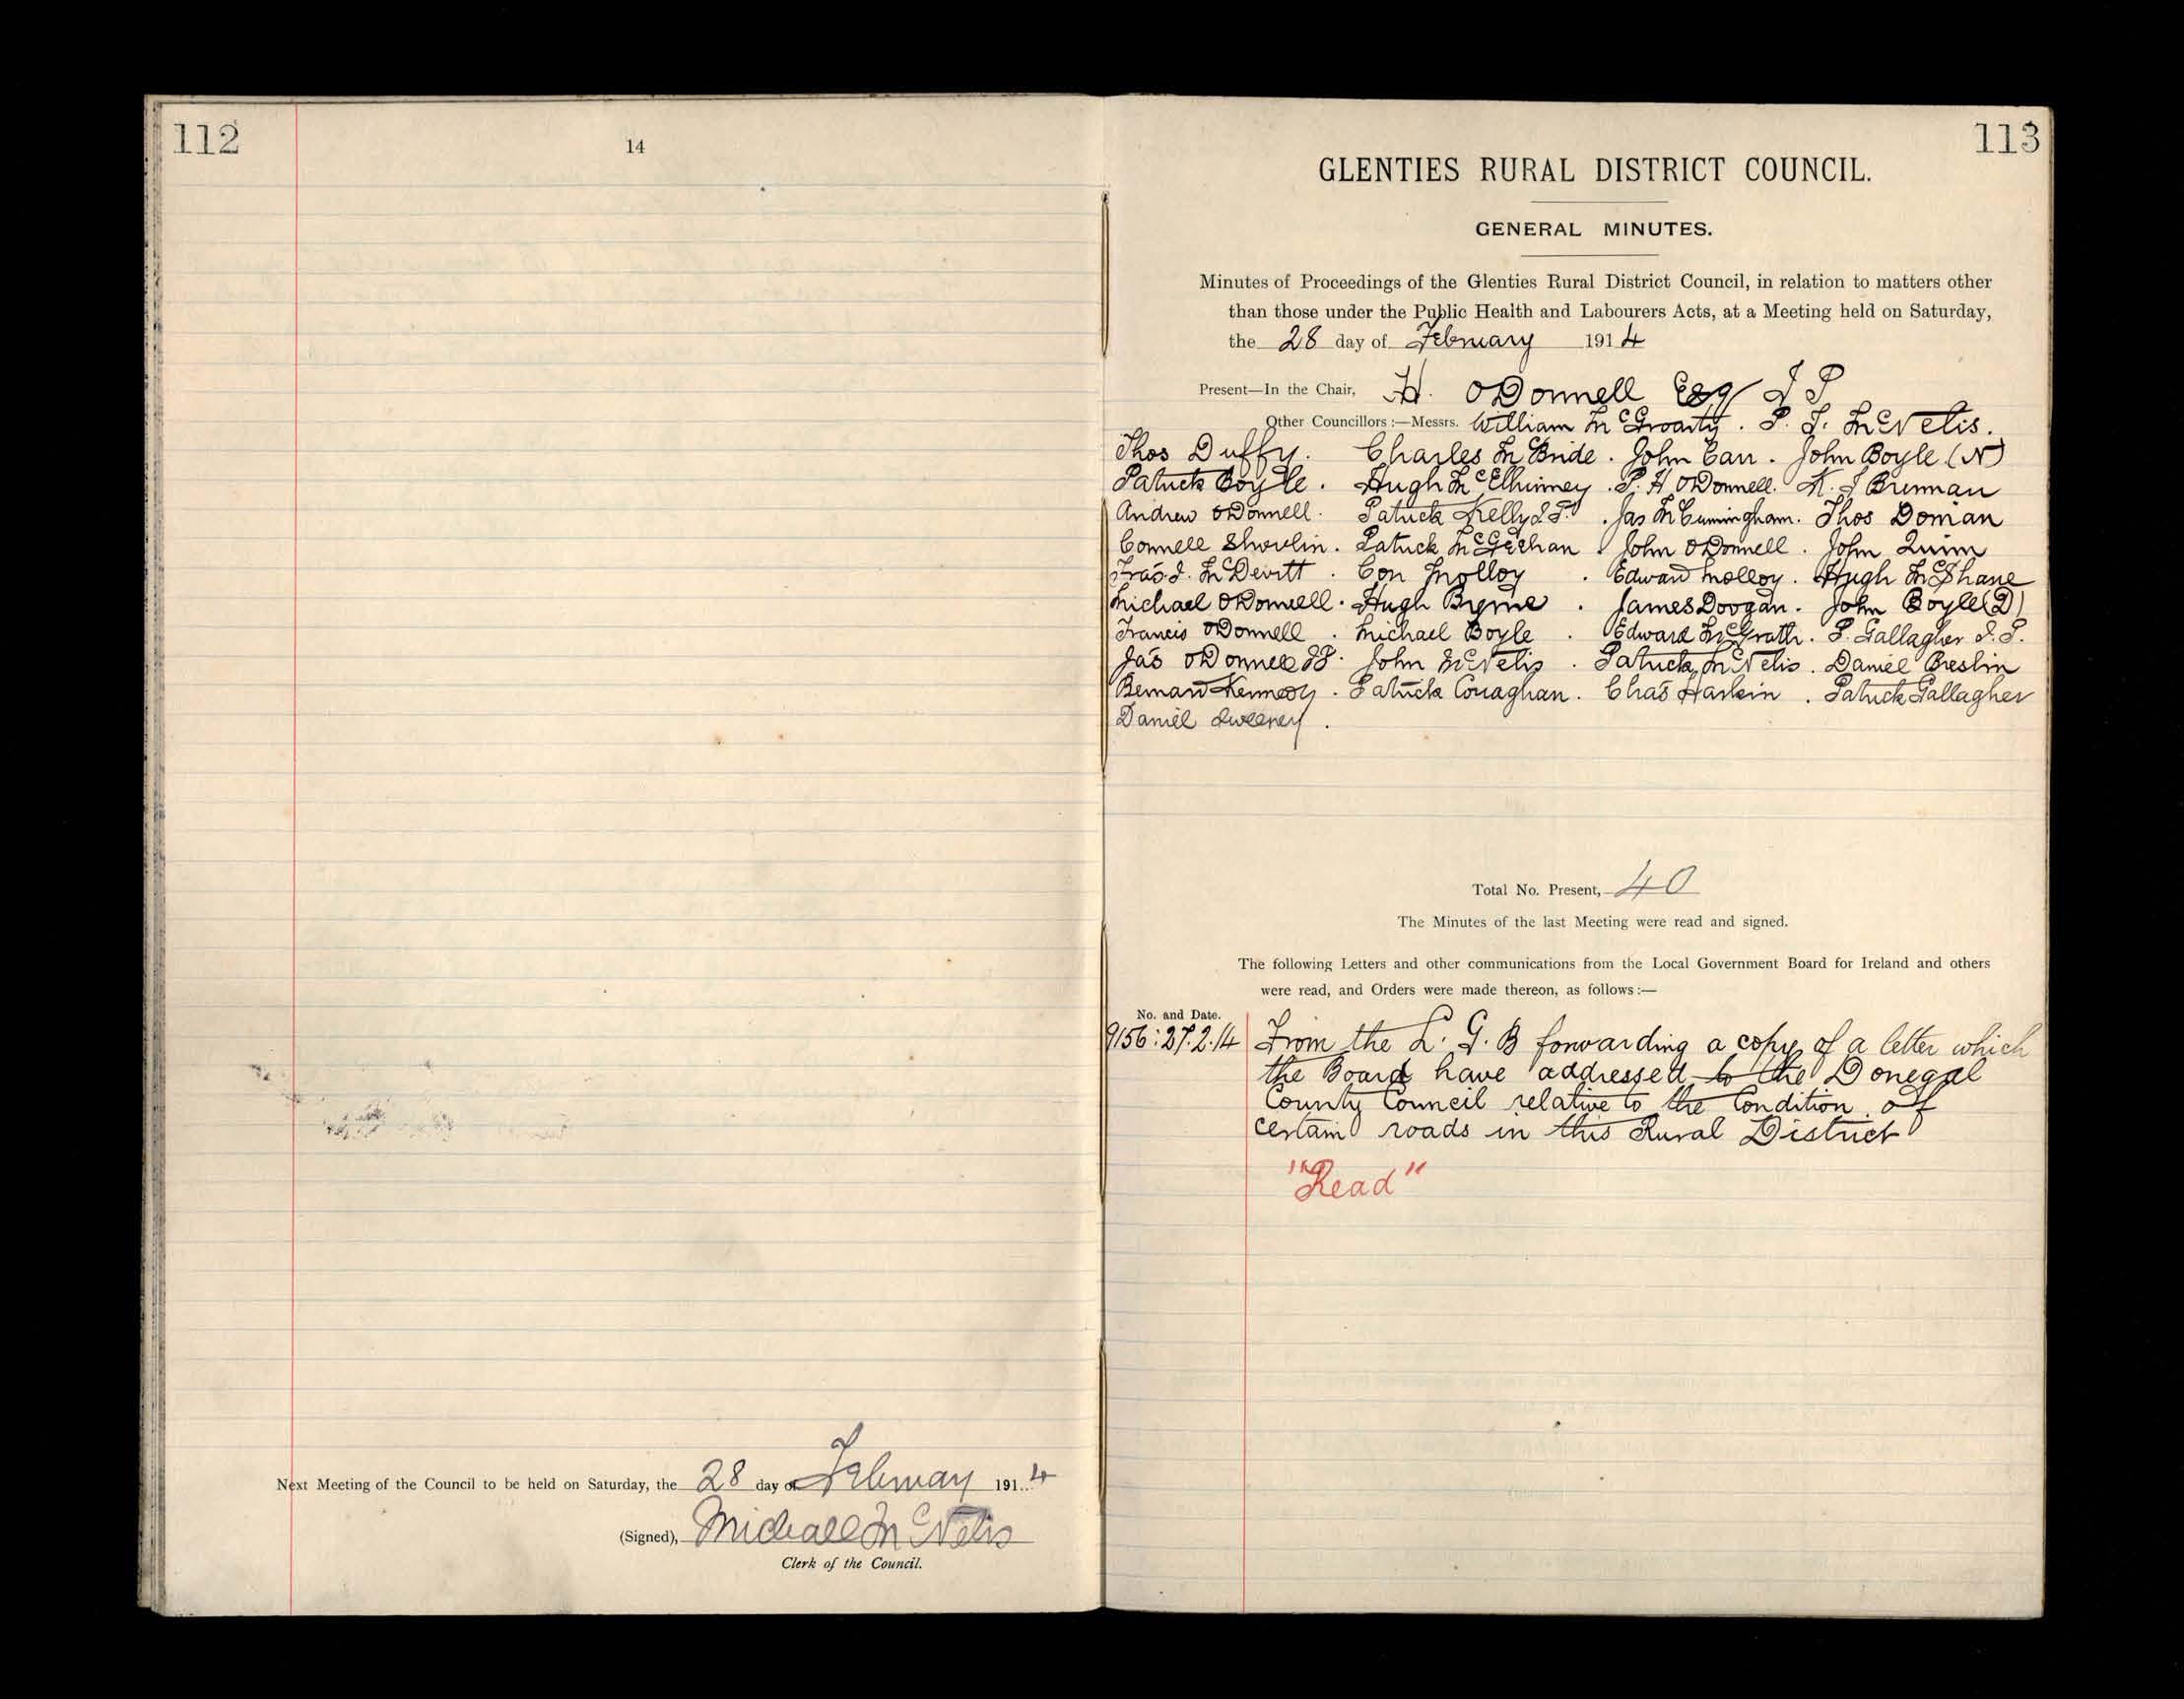 112
14
Next Meeting of the Council to be held on Saturday, the 28 day of February 1914
(Signed), Michael McNelis
Clerk of the Council.
113
GLENTIES RURAL DISTRICT COUNCIL.
GENERAL MINUTES.
Minutes of Proceedings of the Glenties Rural District Council, in relation to matters other
than those under the Public Health and Labourers Acts, at a Meeting held on Saturday,
the 28 day of February 1914
Present—In the Chair, H. ODonnell Esq J P
Other Councillors:—Messrs. William McGroarty. P. J. McNelis.
Thos Duffy. Charles McBride. John Carr. John Boyle (N)
Patrick Boyle. Hugh McElhinney. P. H ODonnell. M. J Brennan
Andrew ODonnell. Patrick Kelly J.P. Jas McCunningham. Thos Doman
Connell Shovlin. Patrick McGeehan. John ODonnell. John Quinn
Fras. J. McDevitt. Con Molloy. Edward Molloy. Hugh McShane
Michael ODonnell. Hugh Byrne. James Doogan. John Boyle (D)
Francis ODonnell. Michael Boyle. Edward McGrath. P. Gallagher J.P.
Jas ODonnell JP. John McNelis. Patrick McNelis. Daniel Breslin
Bernard Kennedy. Patrick Conaghan. Chas Harkin. Patrick Gallagher
Daniel Sweeney.
Total No. Present, 40
The Minutes of the last Meeting were read and signed.
The following Letters and other communications from the Local Government Board for Ireland and others
were read, and Orders were made thereon, as follows:—
No. and Date.
9156:27.2.14 From the L. G. B forwarding a copy of a letter which
the Board have addressed to the Donegal
County Council relative to the Condition of
certain roads in this Rural District
"Read"